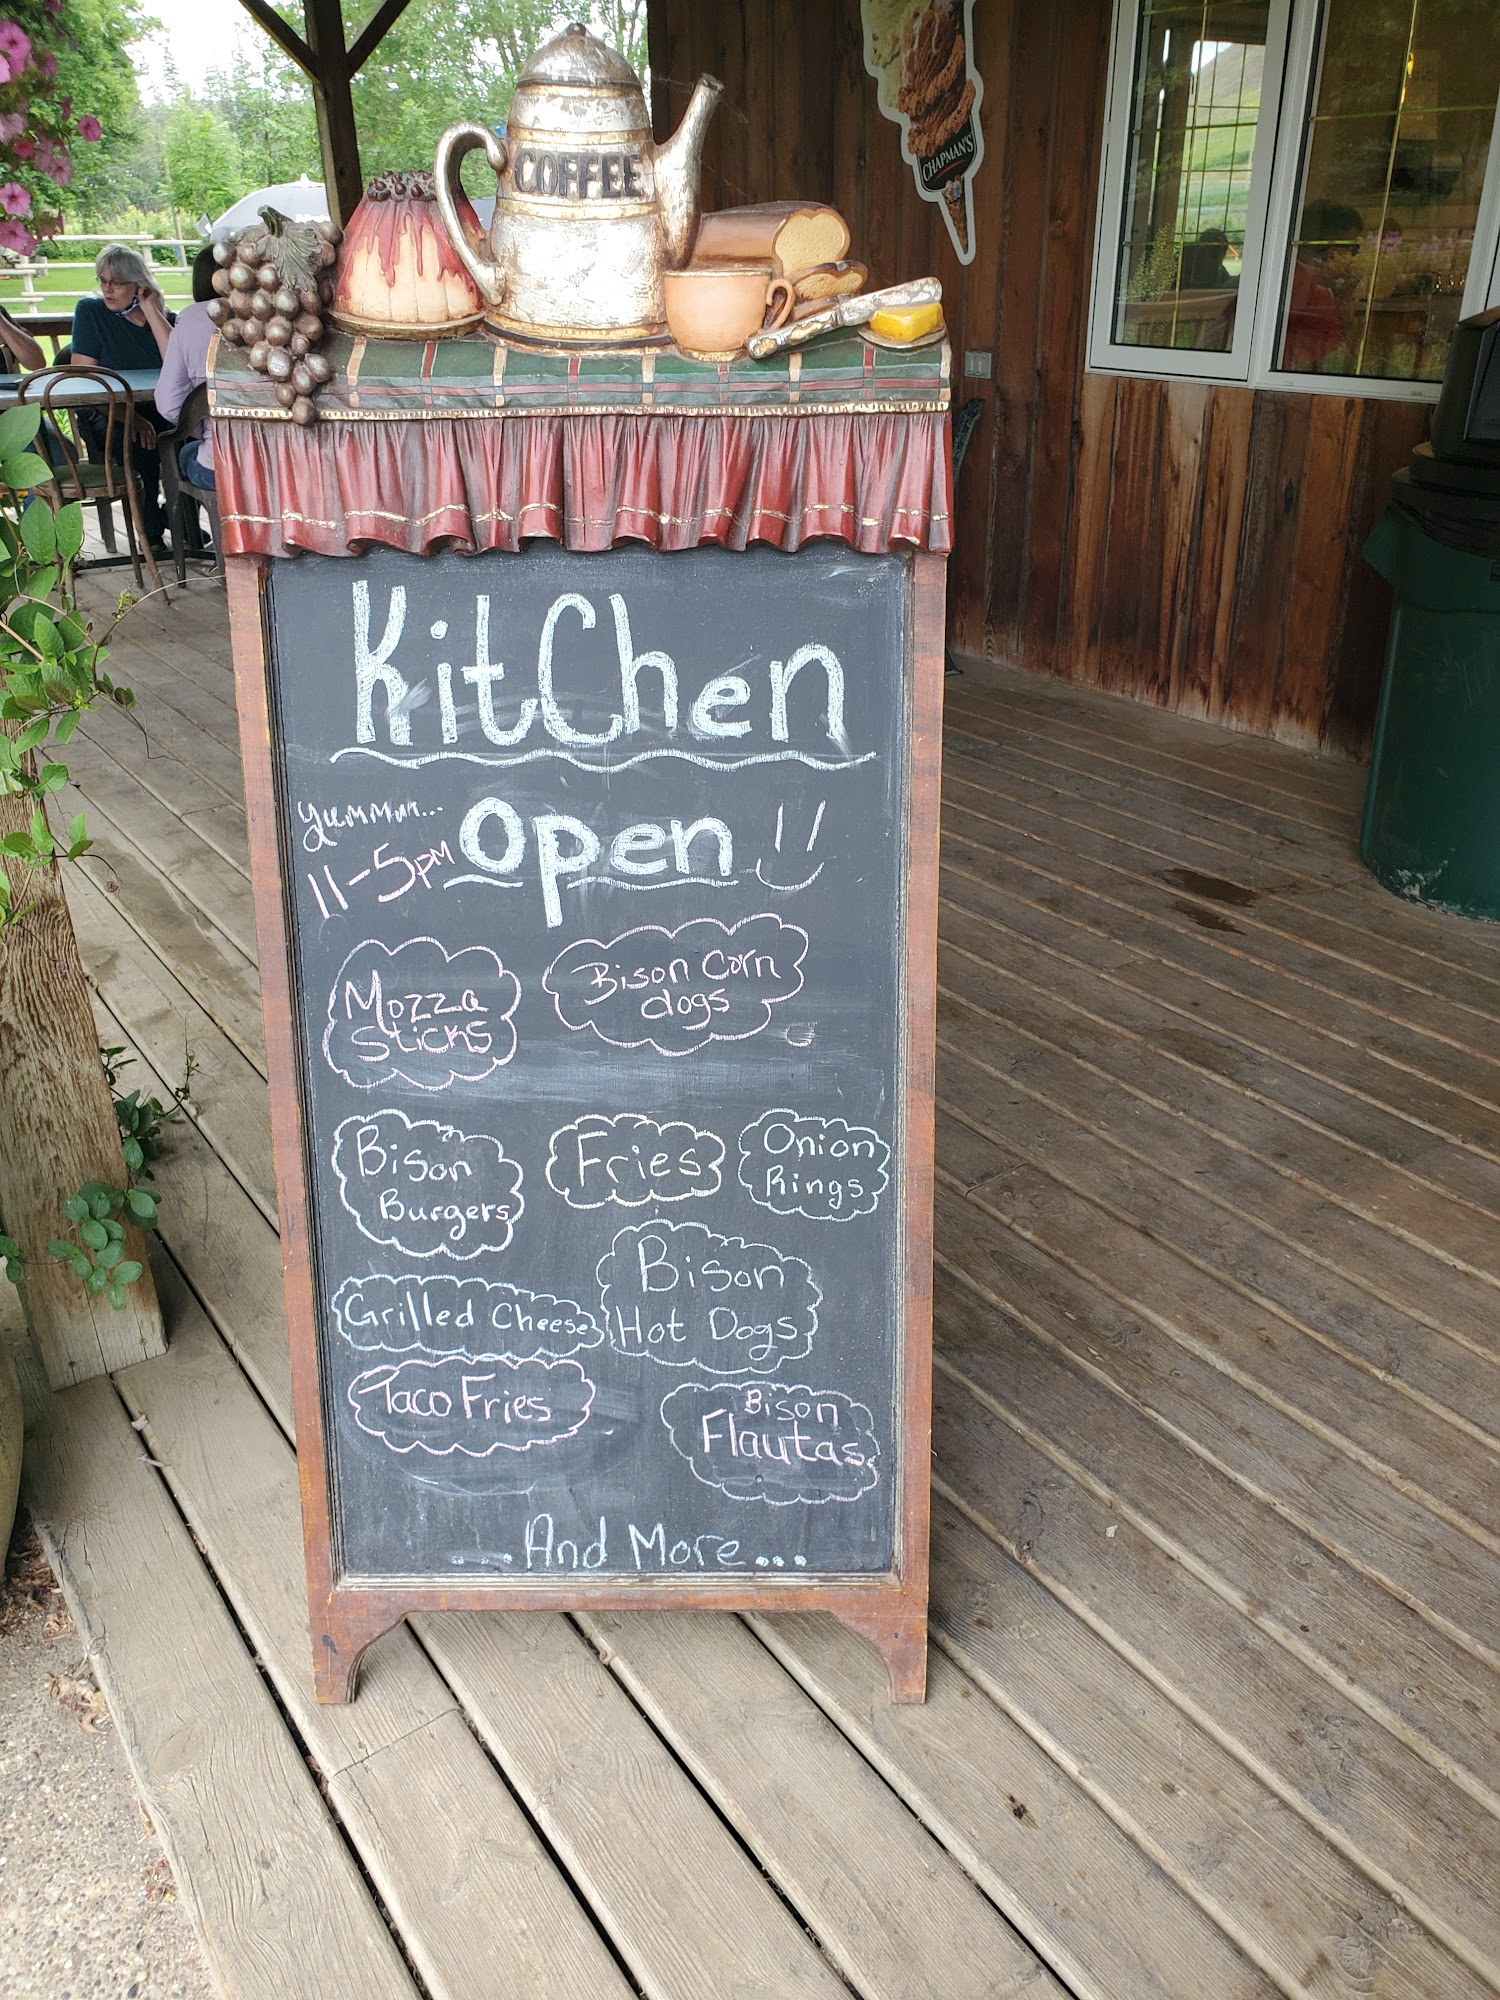 COFFEE
CHAPMAN'S
KitChen
yummm...
Open
11-5pm
Mozza
Sticks
Bison Corn
dogs
Bison
Burgers
Fries
Onion
Rings
Grilled Cheese
Bison
Hot Dogs
Taco Fries
Bison
Flautas
...And More...